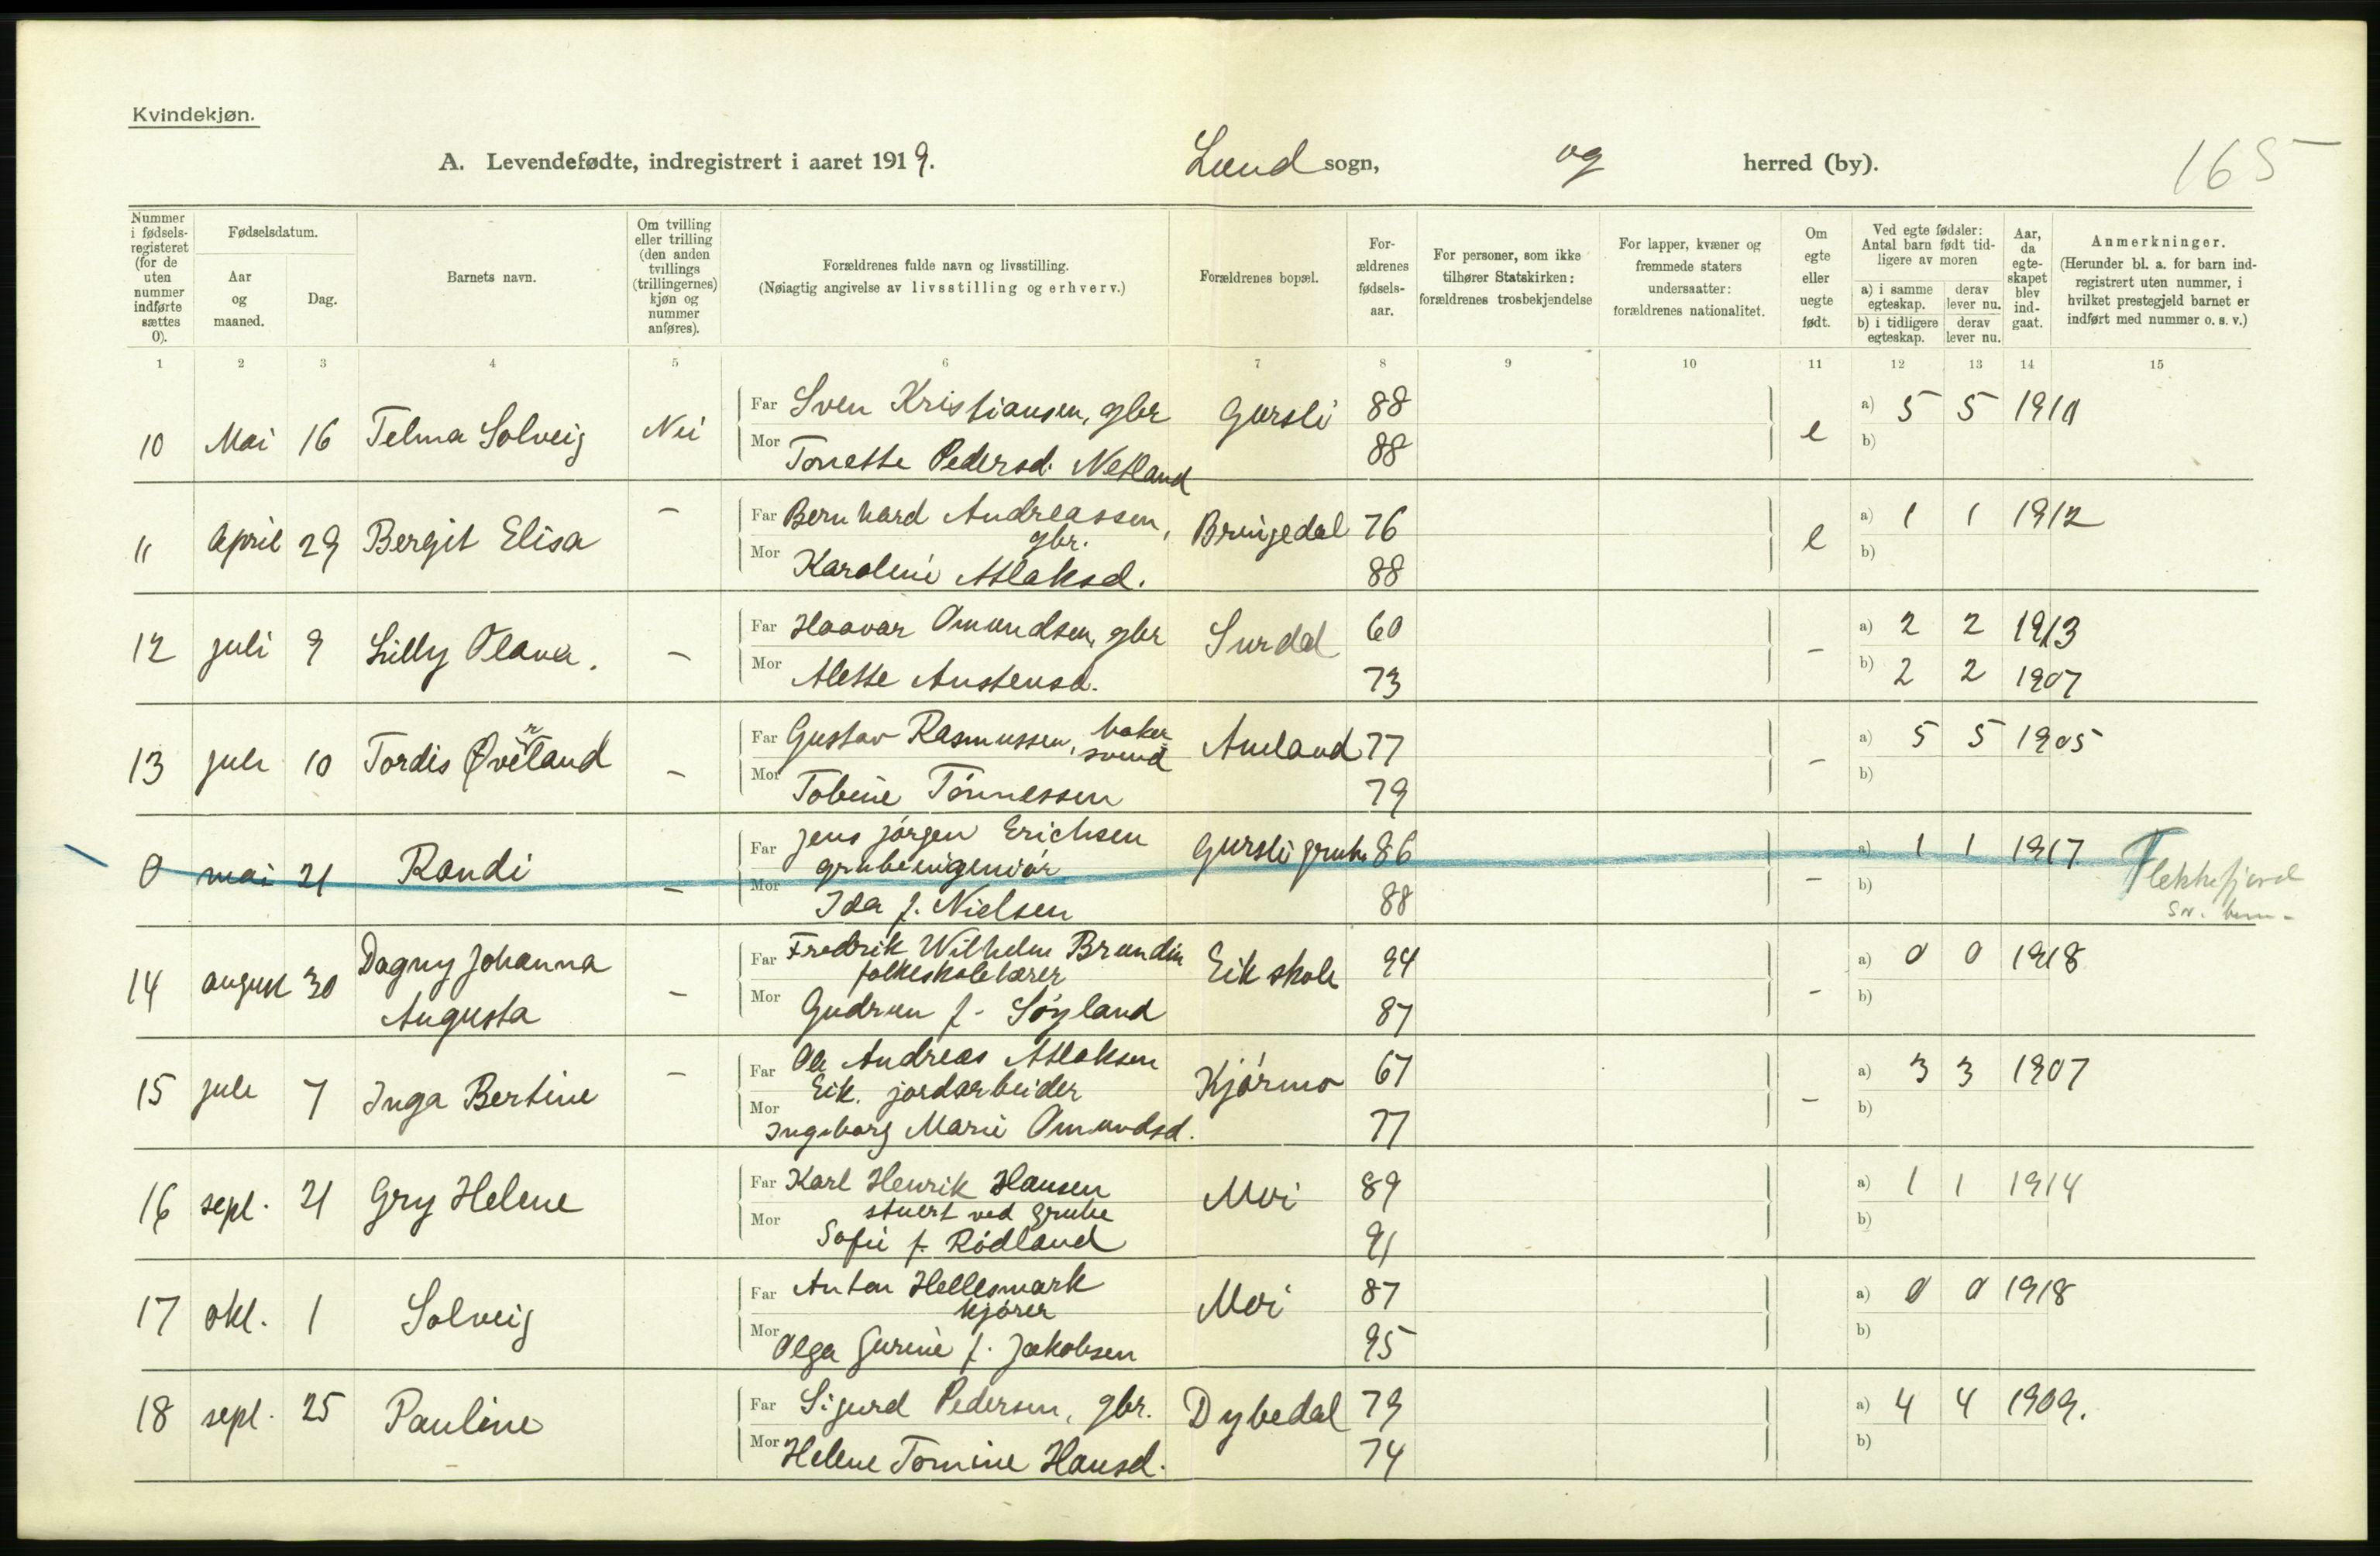 Kvindekjøn.
A. Levendefødte, indregistrert i aaret 1919. Lund sogn, og herred (by). 165
Nummer i fødsels-registeret (for de uten nummer indførte sættes 0).
Fødselsdatum.
Aar og maaned.
Dag.
Barnets navn.
Om tvilling eller trilling (den anden tvillings (trillingernes) kjøn og nummer anføres).
Forældrenes fulde navn og livsstilling.
(Nøiagtig angivelse av livsstilling og erhverv.)
Forældrenes bopæl.
For-ældrenes fødsels-aar.
For personer, som ikke tilhører Statskirken: forældrenes trosbekjendelse
For lapper, kvæner og fremmede staters undersaatter: forældrenes nationalitet.
Om egte eller uegte født.
Ved egte fødsler: Antal barn født tid-ligere av moren
a) i samme egteskap. derav lever nu.
b) i tidligere egteskap. derav lever nu.
Aar, da egte-skapet blev ind-gaat.
Anmerkninger.
(Herunder bl. a. for barn ind-registrert uten nummer, i hvilket prestegjeld barnet er indført med nummer o. s. v.)
1 2 3 4 5 6 7 8 9 10 11 12 13 14 15
10 Mai 16 Telma Solveig Nei Far Sven Kristiansen, gbr Gursli 88 e a) 5 5 1910
Mor Tonette Pedersd. Netland 88 b)
11 April 29 Bergit Elisa – Far Bernhard Andreassen, gbr. Bringedal 76 e a) 1 1 1912
Mor Karoline Atlaksd. 88 b)
12 juli 9 Lilly Olava. – Far Haavar Omundsen, gbr Surdal 60 – a) 2 2 1913
Mor Alette Austensd. 73 b) 2 2 1907
13 juli 10 Tordis Øvreland – Far Gustav Rasmussen, bakersvend Aueland 77 – a) 5 5 1905
Mor Tobine Tønnessen 79 b)
0 mai 21 Randi – Far Jens Jørgen Erichsen Gursli grube 86 – a) 1 1 1917 Flekkefjord
grubeingeniør
Mor Ida f. Nielsen 88 b)
14 august 30 Dagny Johanna Augusta – Far Fredrik Wilhelm Brundin Eik skole 94 – a) 0 0 1918
folkeskolelærer
Mor Gudrun f. Søyland 87 b)
15 juli 7 Inga Bertine – Far Ole Andreas Atlaksen Kjørmo 67 – a) 3 3 1907
Eik. jordarbeider
Mor Ingeborg Marie Omundsd. 77 b)
16 sept. 21 Gry Helene Far Karl Henrik Hansen Moi 89 a) 1 1 1914
stuert ved grube
Mor Sofie f. Rødland 91 b)
17 okt. 1 Solveig Far Anton Hellesmark Moi 87 a) 0 0 1918
kjører
Mor Olga Gurine f. Jakobsen 95 b)
18 sept. 25 Pauline Far Sigurd Pedersen, gbr. Dybedal 79 a) 4 4 1909.
Mor Helene Tomine Hansd. 74 b)